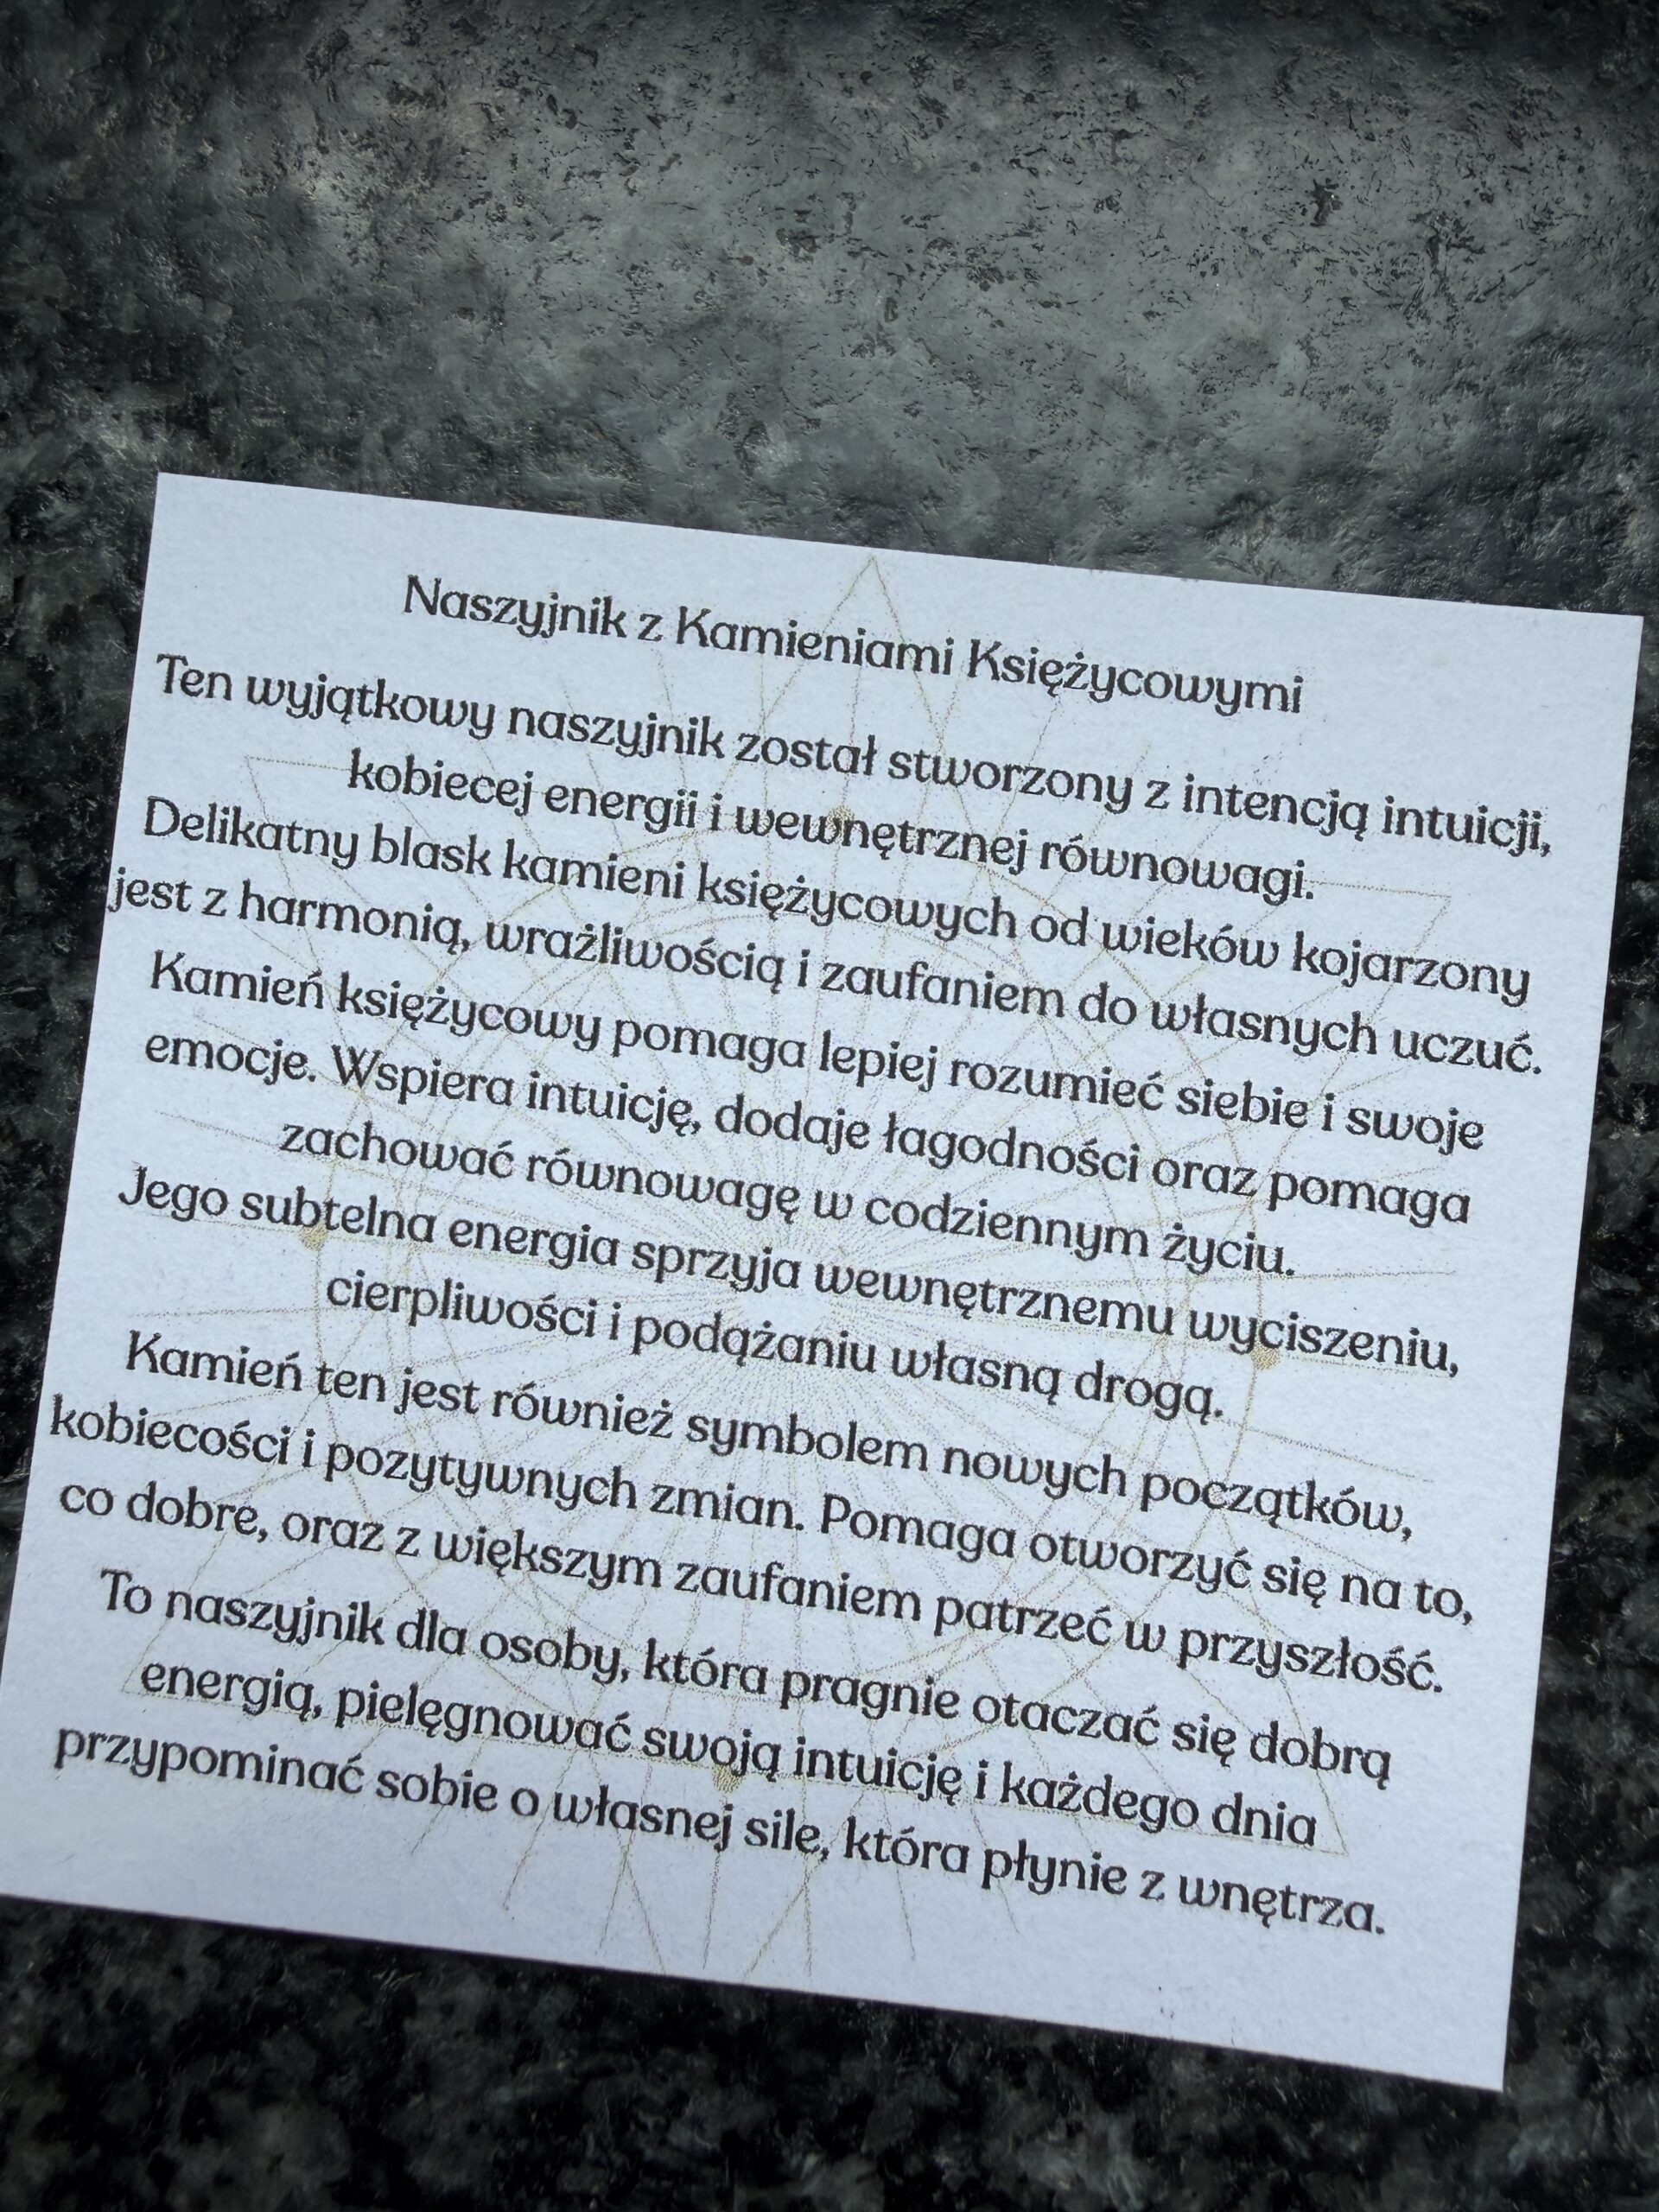 Naszyjnik z Kamieniami Księżycowymi
Ten wyjątkowy naszyjnik został stworzony z intencją intuicji,
kobiecej energii i wewnętrznej równowagi.
Delikatny blask kamieni księżycowych od wieków kojarzony
jest z harmonią, wrażliwością i zaufaniem do własnych uczuć.
Kamień księżycowy pomaga lepiej rozumieć siebie i swoje
emocje. Wspiera intuicję, dodaje łagodności oraz pomaga
zachować równowagę w codziennym życiu.
Jego subtelna energia sprzyja wewnętrznemu wyciszeniu,
cierpliwości i podążaniu własną drogą.
Kamień ten jest również symbolem nowych początków,
kobiecości i pozytywnych zmian. Pomaga otworzyć się na to,
co dobre, oraz z większym zaufaniem patrzeć w przyszłość.
To naszyjnik dla osoby, która pragnie otaczać się dobrą
energią, pielęgnować swoją intuicję i każdego dnia
przypominać sobie o własnej sile, która płynie z wnętrza.